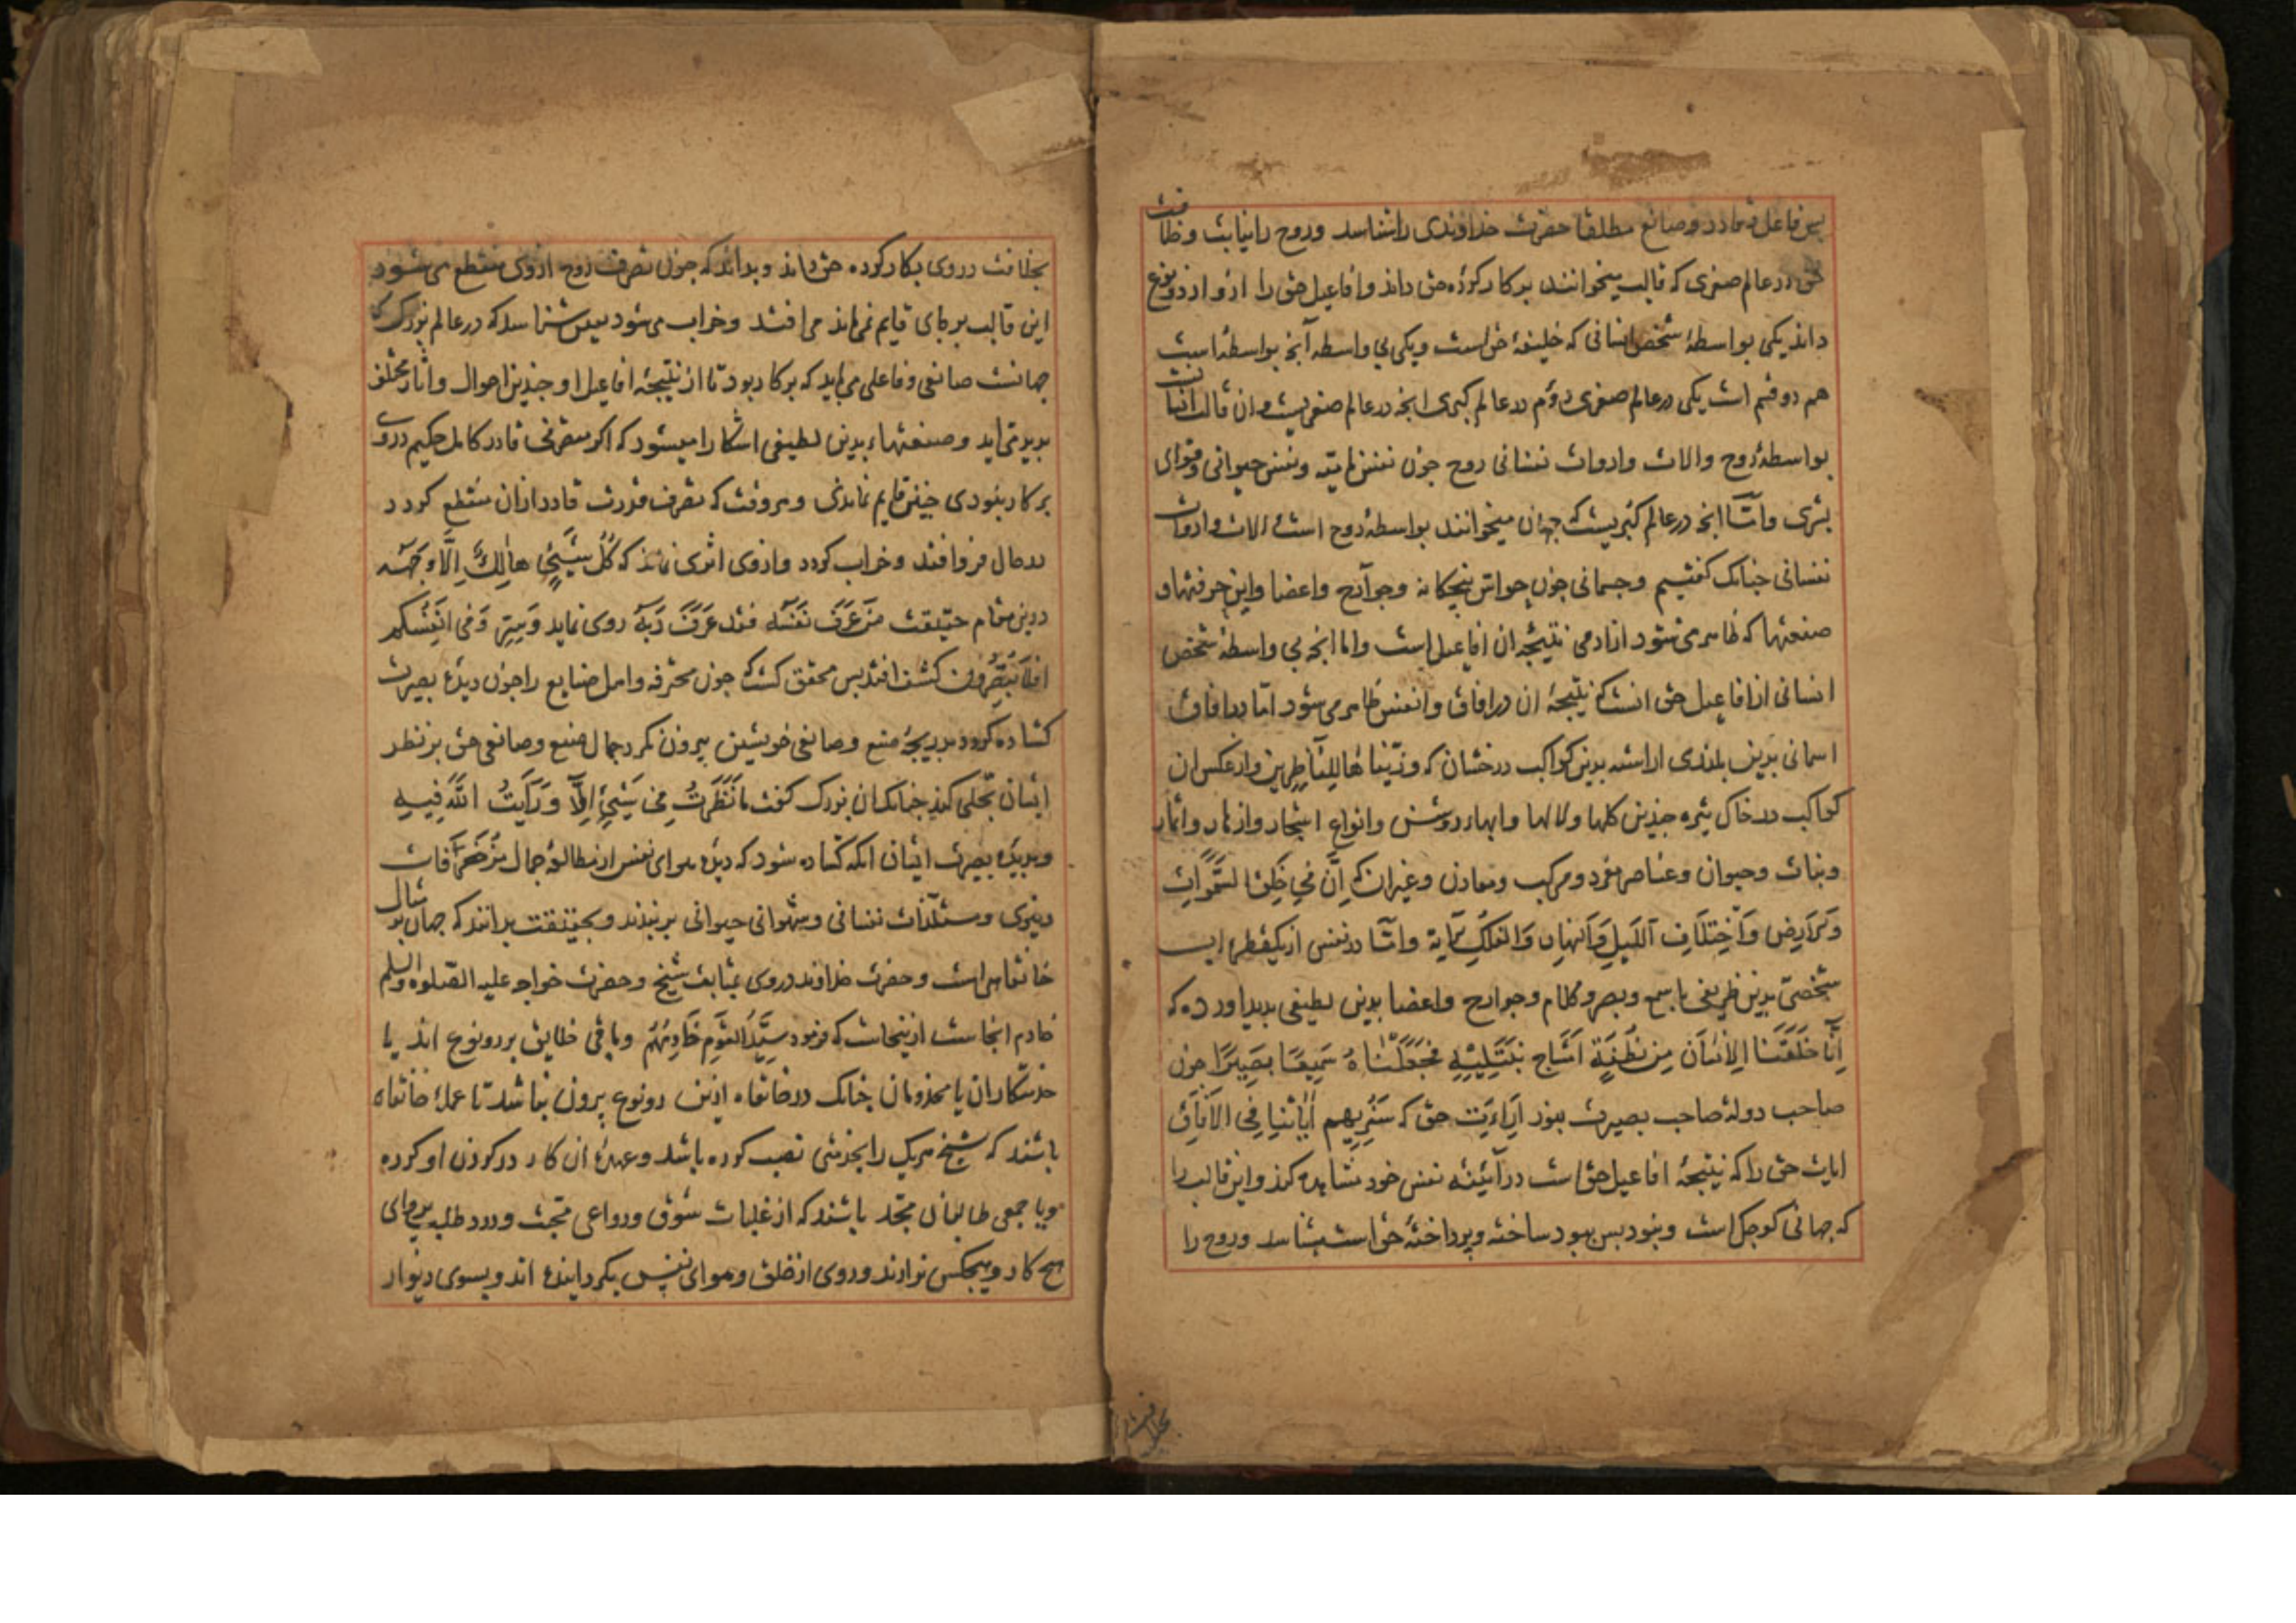 پس فاعل و قادر و صانع مطلقا حضرت خداوندی را شناسد و روح را نیابت و خلافت
حق در عالم صغری که قالب میخوانند بر کار کرده حق داند و افاعیل حق را ازو از دو نوع
داند یکی بواسطهٔ شخص انسانی که خلیفهٔ حق است و یکی بی واسطه آنچ بواسطه است
هم دو قسم است یکی در عالم صغری دوم در عالم کبری انچه در عالم صغریست و ان قالب انسانیست
بواسطهٔ روح و الات و ادوات نفسانی روح چون نفس نامیه و نفس حیوانی و قوای
بشری و امّا انچ در عالم کبریست که جهان میخوانند بواسطهٔ روح است و الات و ادوات
نفسانی جنانک کفتیم و جسمانی چون حواس پنجکانه و جوارح و اعضا و این حرفتها و
صنعتها که ظاهر می شود از ادمی نتیجه ان افاعیل است و اما انچه بی واسطهٔ شخص
انسانی از افاعیل حق انست که نتیجهٔ ان در افاق و انفس ظاهر می شود امّا در افاق
اسمانی بدین بلندی اراسته بدین کواکب درخشان که و زیّناها للناظرین و از عکس ان
کواکب در خاک تیره چندین کلها و لالها و ابهاء روشن و انواع اشجار و ازهار و اثمار
و نبات و حیوان و عناصر مفرد و مرکب و معادن و غیران که اِنَّ فی خَلقِ السَّمَوات
وَ الاَرضِ وَ اختِلافِ اللَّیلِ وَ النَّهارِ وَ الفُلکِ الآیة و امّا در نفس از یک قطره اب
شخصی بدین ظریفی با سمع و بصر و کلام و جوارح و اعضا بدین لطیفی بدید اورده که
اِنَّا خَلَقنَا الاِنسَانَ مِن نُطفَةٍ اَمشَاجٍ نَبتَلِیهِ فَجَعَلنَاهُ سَمِیعًا بَصِیرًا چون
صاحب دولهٔ صاحب بصیرت بنور اراءت حق که سَنُرِیهِم اٰیَاتِنَا فِی الاٰفَاقِ
ایات حق را که نتیجهٔ افاعیل حق است در آئینه نفس خود مشاهده کند و این قالب را
که جهانی کوچک است و نبود پس ببود ساخته و پرداختهٔ حق است بشناسد و روح را
بخلافت
بخلافت در وی بکار کرده حق داند و بداند که چون تصرف روح از وی منقطع می شود
این قالب بر جای قایم نمی ماند می افتد و خراب می شود پس شناسد که در عالم بزرک که
جهانست صانعی و فاعلی می باید که بر کار بود تا از نتیجهٔ افاعیل او چندین احوال و اثار مختلف
بدید می اید و صنعتهاء بدین لطیفی اشکارا میشود که اکر متصرفی قادر کامل حکیم در وی
بر کار نبودی جنین قایم نماندی و هر وقت که تصرف قدرت قادر ازان منقطع کردد
در حال فرو افتد و خراب کردد و از وی اثری نماند که کُلُّ شَیءٍ هَالِکٌ اِلَّا وَجهَه
درین مقام حقیقت مَن عَرَفَ نَفسَه فقد عَرَفَ رَبَّه روی نماید و سِرّ وَ فی اَنفُسِکُم
افَلا تُبصِرُون کشف افتد پس محقق کشت که چون محترفه و اهل صنایع را چون دیدهٔ بصیرت
کشاده کردد بدریجهٔ صنع و صانعی خویشتن بیرون نکرد جمال صنع و صانعی حق بر نظر
ایشان تجلی کند چنانک ان بزرک کفت مَا نَظَرتُ فی شَیءٍ اِلَّا وَ رَاَیتُ اللّٰهَ فِیهِ
و دیدهٔ بصیرت ایشان انکه کشاده شود که دیدهٔ هوای نفس از مطالعهٔ جمال مزخرفات
دنیوی و مستلذّات نفسانی و شهوانی حیوانی بربندند و بحقیقت بدانند که جهان بر مثال
خانقاهی است و حضرت خداوند در وی بمثابت شیخ و حضرت خواجه علیه الصّلوة و السلم
خادم انجاست ازینجاست که فرمود سَیِّدُ القَومِ خَادِمُهُم و باقی خلایق بر دو نوع اند یا
خدمتکاران یا مخدومان چنانک در خانقاه ازین دو نوع بیرون نباشد تا عملهٔ خانقاه
باشند که شیخ هریک را بخدمتی نصب کرده باشد و عهدهٔ ان کار در کردن او کرده
و یا جمعی طالبان مجد باشند که از غلبات شوق و دواعی محبت و درد طلب پروای
هیچ کار و هیچکس ندارند و روی از خلق و هوای نفس بکردانیده اند و بسوی دیوار